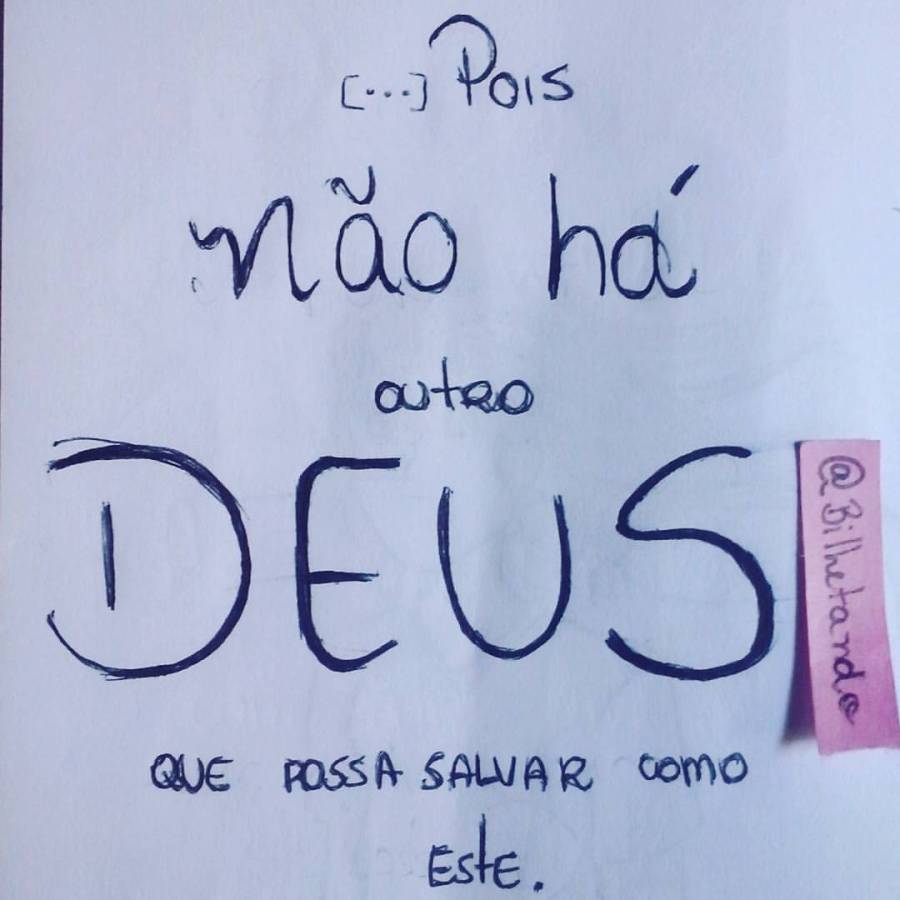 [...] Pois
não há
outro
DEUS
QUE POSSA SALVAR COMO
ESTE.
@Bilhetando